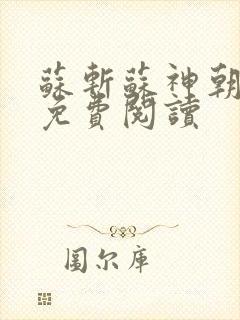 蘇斬蘇神朝
免費閱讀
圖尔库